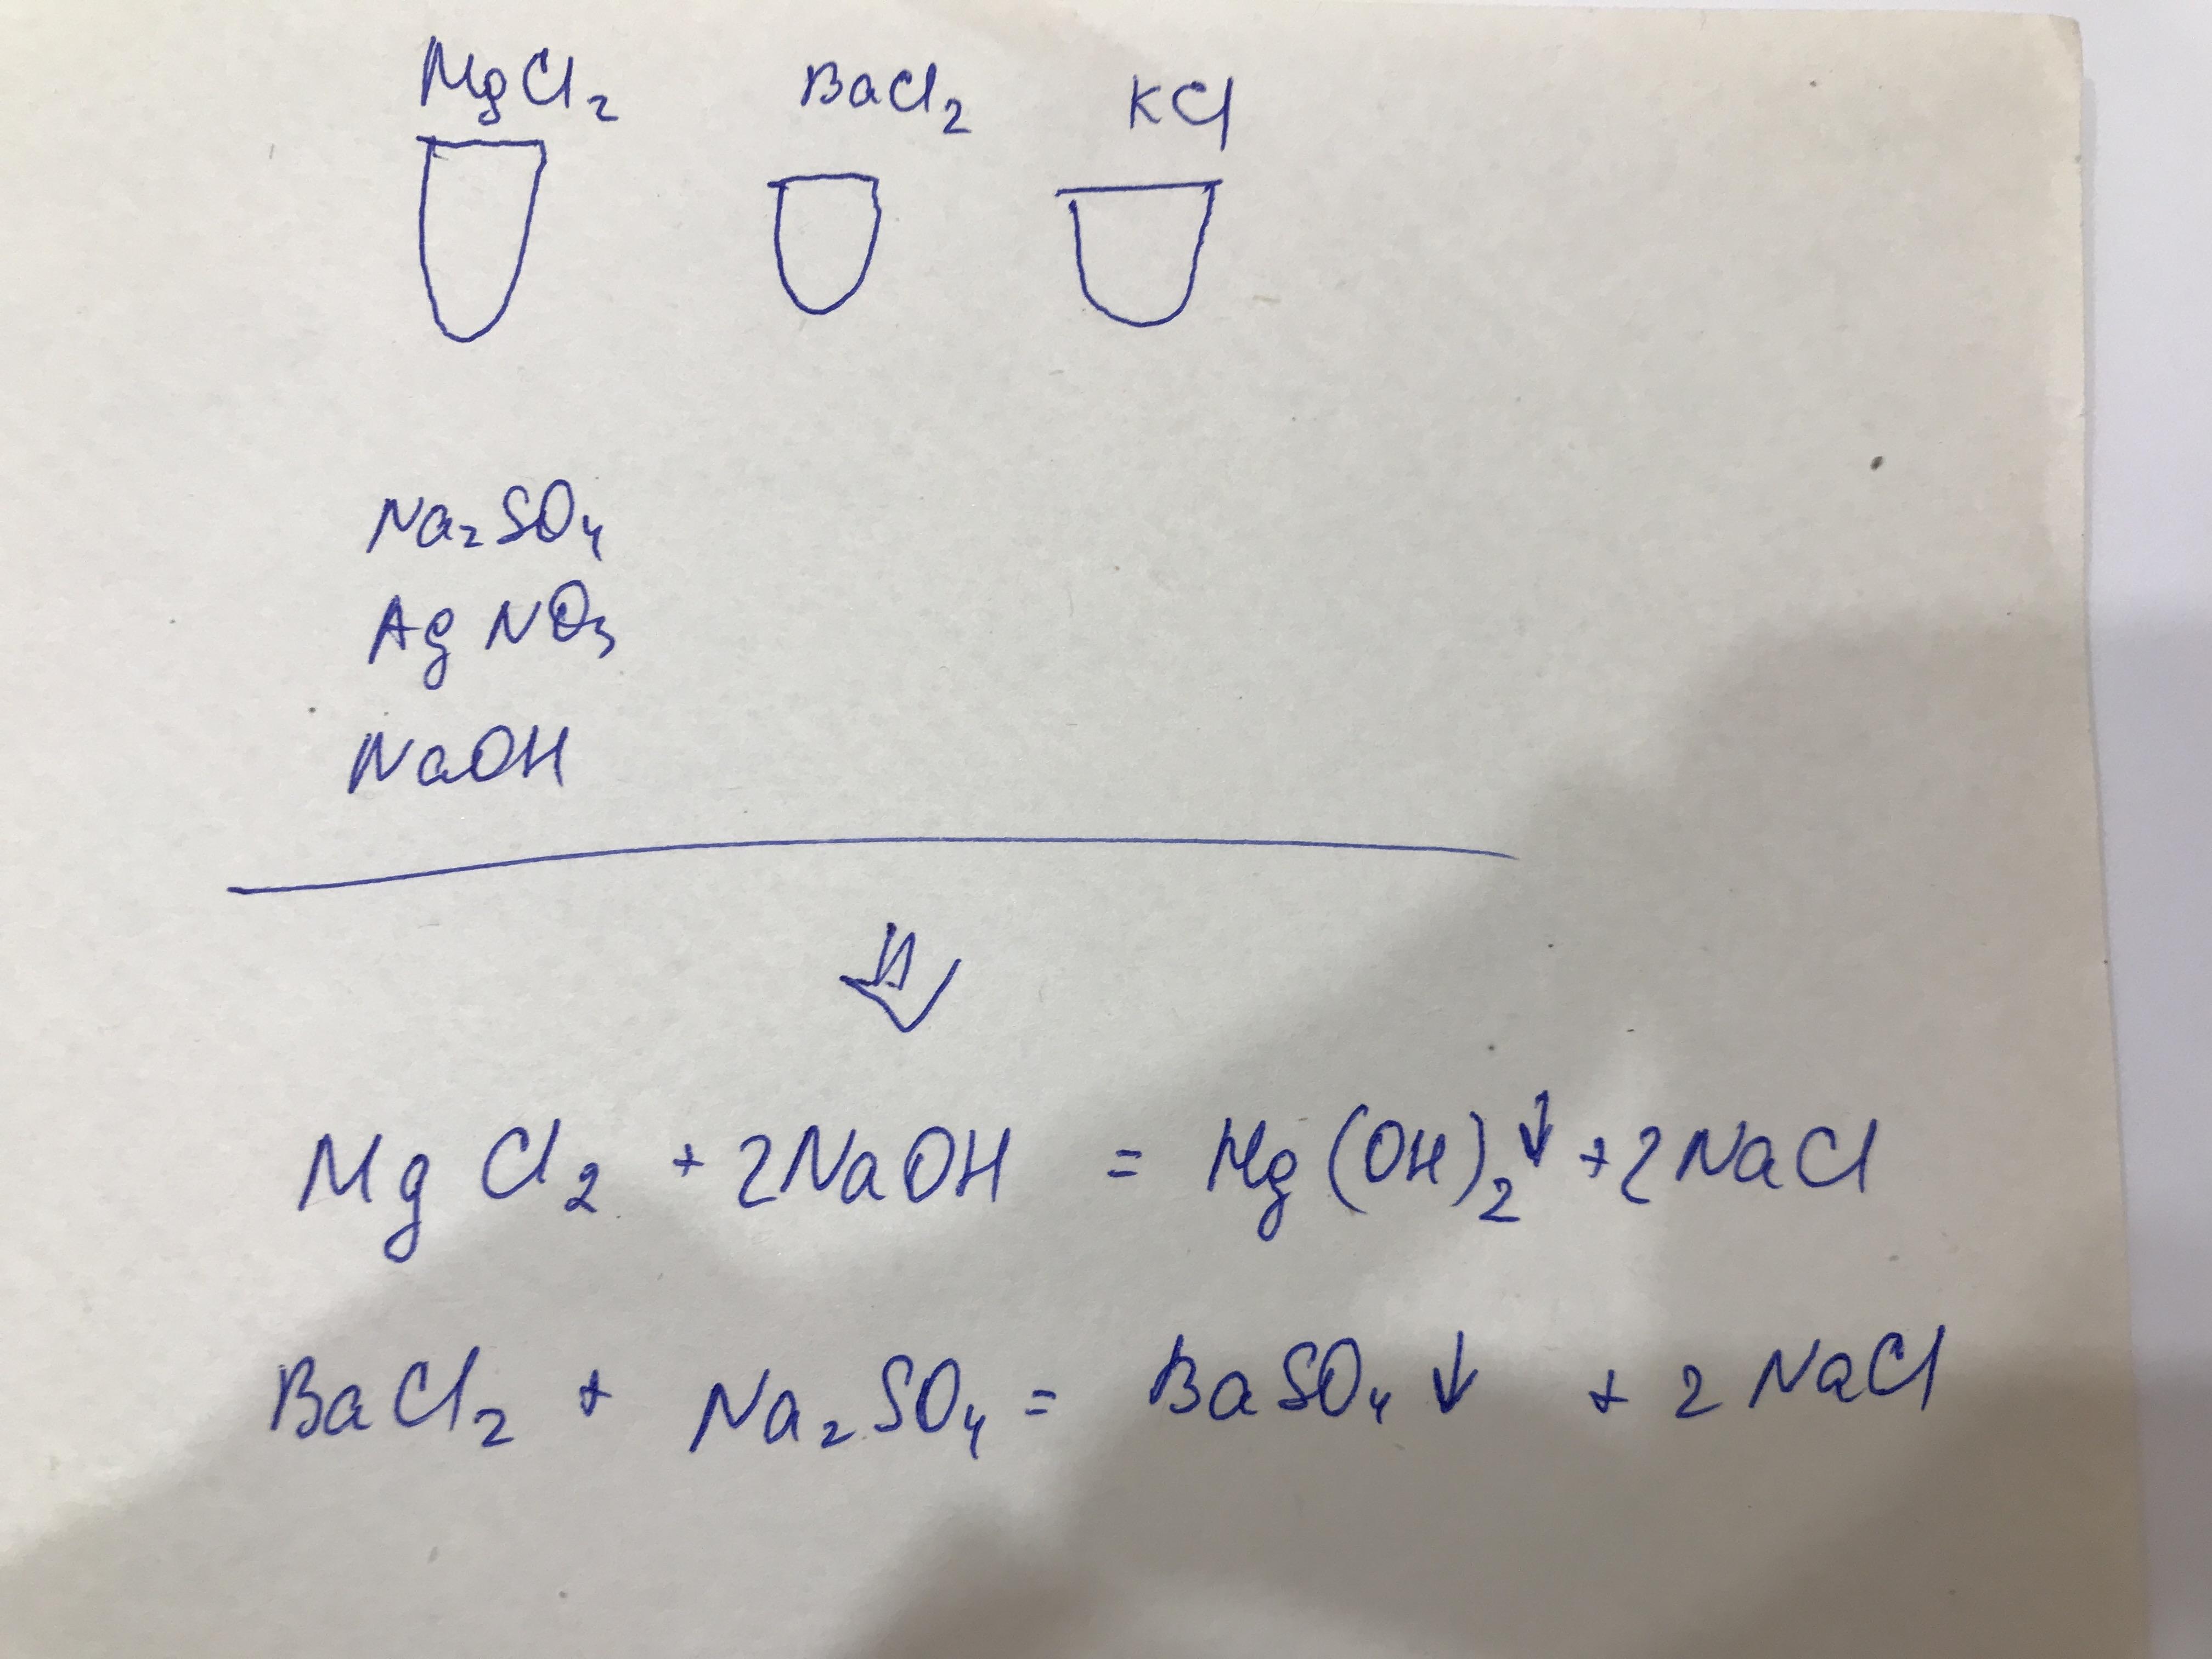 MgCl₂ BaCl₂ KCl
Na₂SO₄
AgNO₃
NaOH
MgCl₂ + 2NaOH = Mg(OH)₂↓ + 2NaCl
BaCl₂ + Na₂SO₄ = BaSO₄↓ + 2NaCl